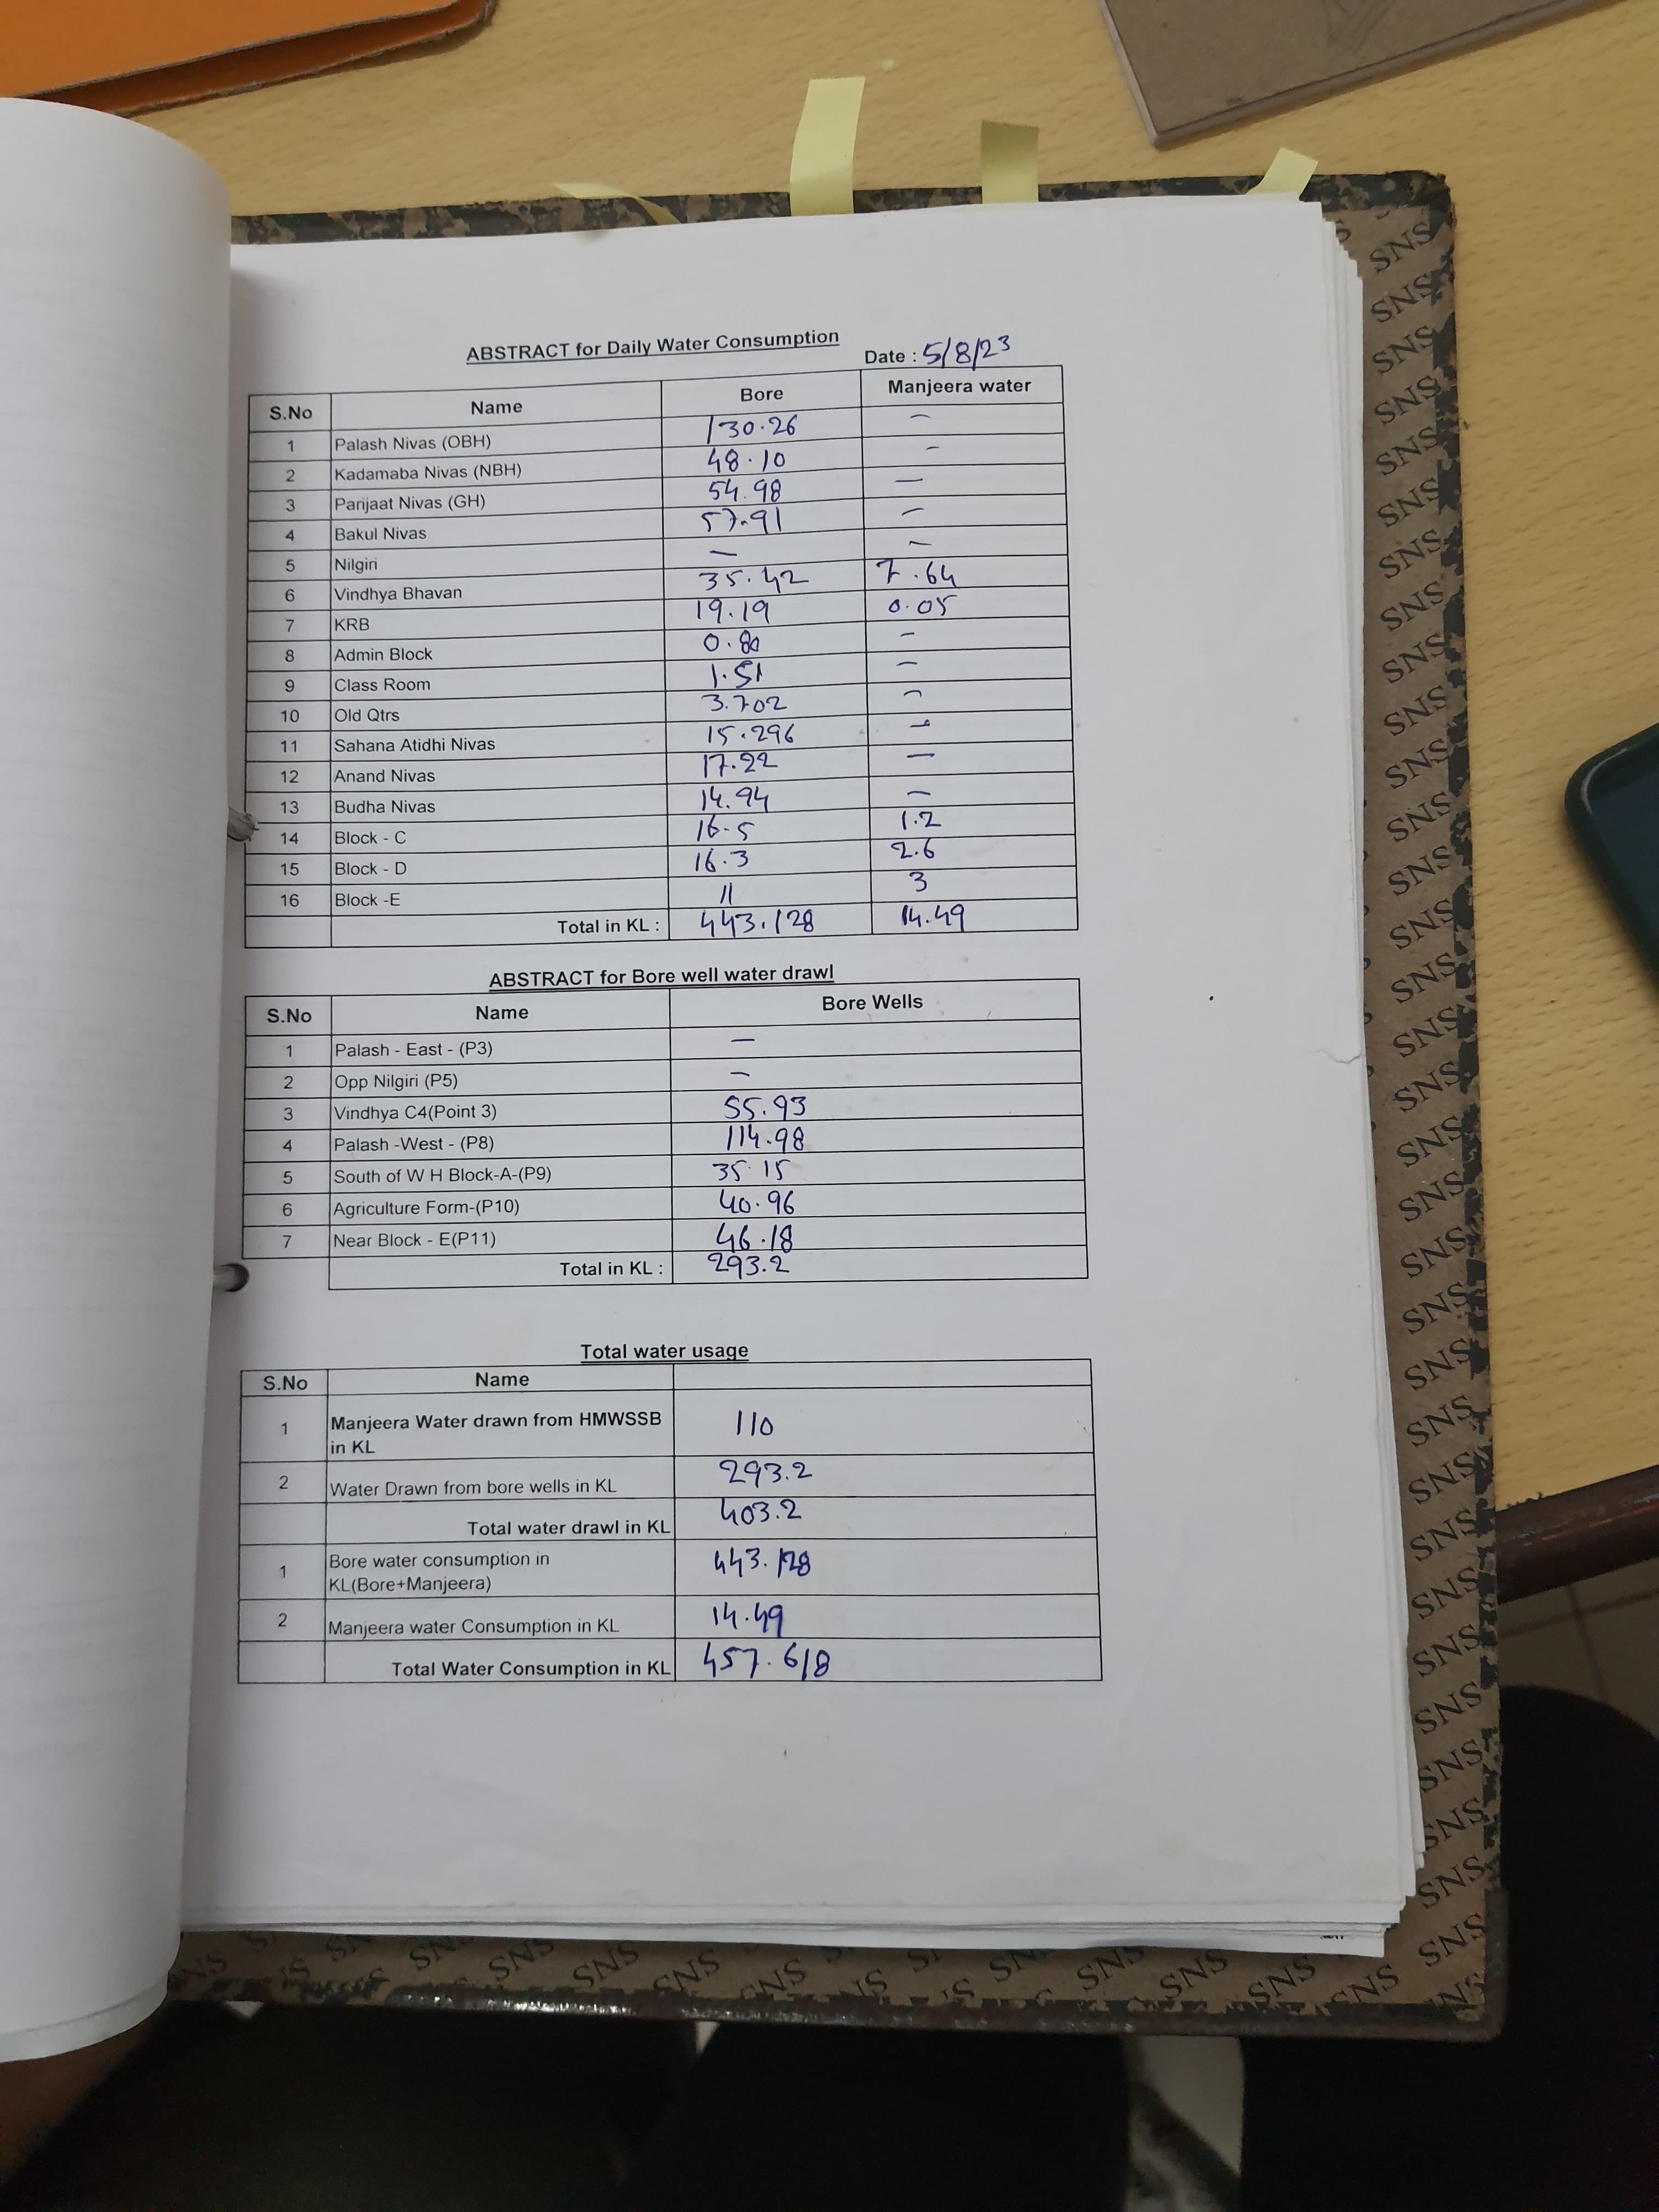 ABSTRACT for Daily Water Consumption
Date : 5/8/23
S.No Name Bore Manjeera water
1 Palash Nivas (OBH) 130.26 –
2 Kadamaba Nivas (NBH) 48.10 –
3 Parijaat Nivas (GH) 54.98 –
4 Bakul Nivas 57.91 –
5 Nilgiri – –
6 Vindhya Bhavan 35.42 7.64
7 KRB 19.19 0.05
8 Admin Block 0.80 –
9 Class Room 1.51 –
10 Old Qtrs 3.702 –
11 Sahana Atidhi Nivas 15.296 –
12 Anand Nivas 17.22 –
13 Budha Nivas 14.94 –
14 Block - C 16.5 1.2
15 Block - D 16.3 2.6
16 Block -E 11 3
Total in KL : 443.128 14.49
ABSTRACT for Bore well water drawl
S.No Name Bore Wells
1 Palash - East - (P3) –
2 Opp Nilgiri (P5) –
3 Vindhya C4(Point 3) 55.93
4 Palash -West - (P8) 114.98
5 South of W H Block-A-(P9) 35.15
6 Agriculture Form-(P10) 40.96
7 Near Block - E(P11) 46.18
Total in KL : 293.2
Total water usage
S.No Name
1 Manjeera Water drawn from HMWSSB in KL 110
2 Water Drawn from bore wells in KL 293.2
Total water drawl in KL 403.2
1 Bore water consumption in KL(Bore+Manjeera) 443.128
2 Manjeera water Consumption in KL 14.49
Total Water Consumption in KL 457.618
SNS